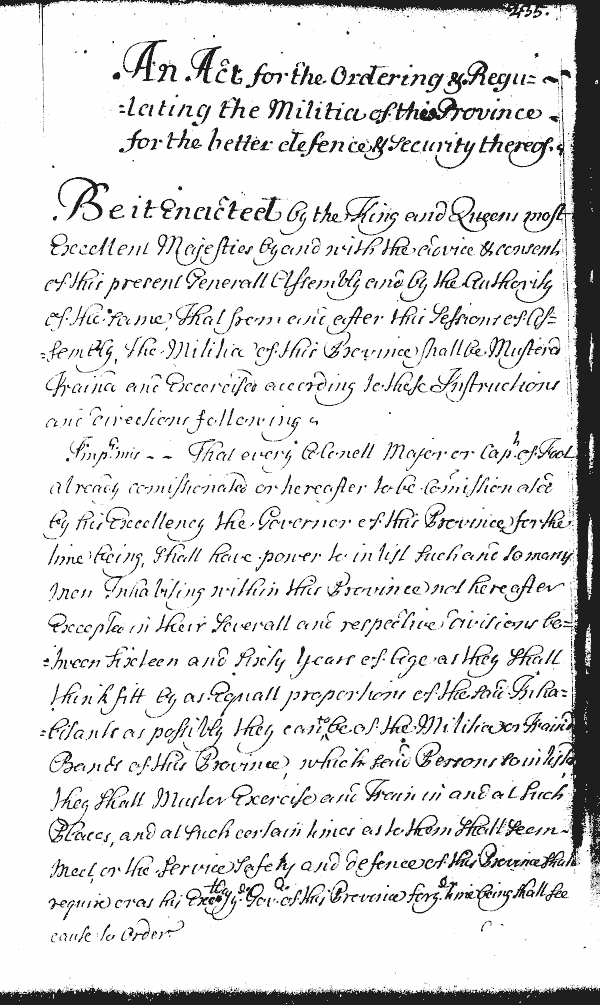 455.
An Act for the Ordering & Regu=
=lating the Militia of this Province
for the better defence & Security thereof.
Be it Enacted by the King and Queens most
Excellent Majesties by and with the advice & consent
of this present Generall Assembly and by the Authority
of the same, That from and after this Sessions of As=
=sembly, the Militia of this Province shall be Musterd
Traind and Excercised according to these Instructions
and directions following
Imp.mis - - That every Colonell Major or Capt. of Foot
already comissionated or hereafter to be Comissionated
by his Excellency the Governor of this Province for the
time being, shall have power to inlist such and so many
men Inhabiting within this Province not hereafter
Excepted in their Severall and respective divisions be=
=tween Sixteen and Sixty Years of Age as they shall
think fitt by as Equall proportions of the said Inha=
=bitants as possibly they can to be of the Militia or Traind
Bands of this Province, which said Persons so inlisted
they shall Muster Exercise and Train in and at such
Places, and at such certain times as to them shall seem
meet, or the Service Safety and defence of this Province shall
require or as his Excy. ye Govr. of this Province for ye time being shall see
cause to Order.